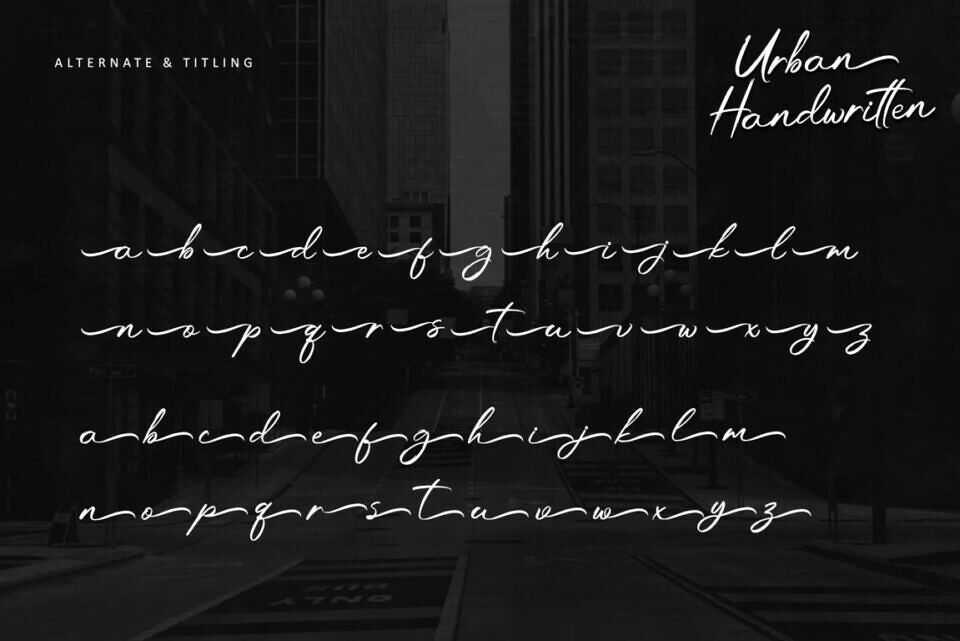 ALTERNATE & TITLING
Urban
Handwritten
a b c d e f g h i j k l m
n o p q r s t u v w x y z
a b c d e f g h i j k l m
n o p q r s t u v w x y z
ONLY
BUS